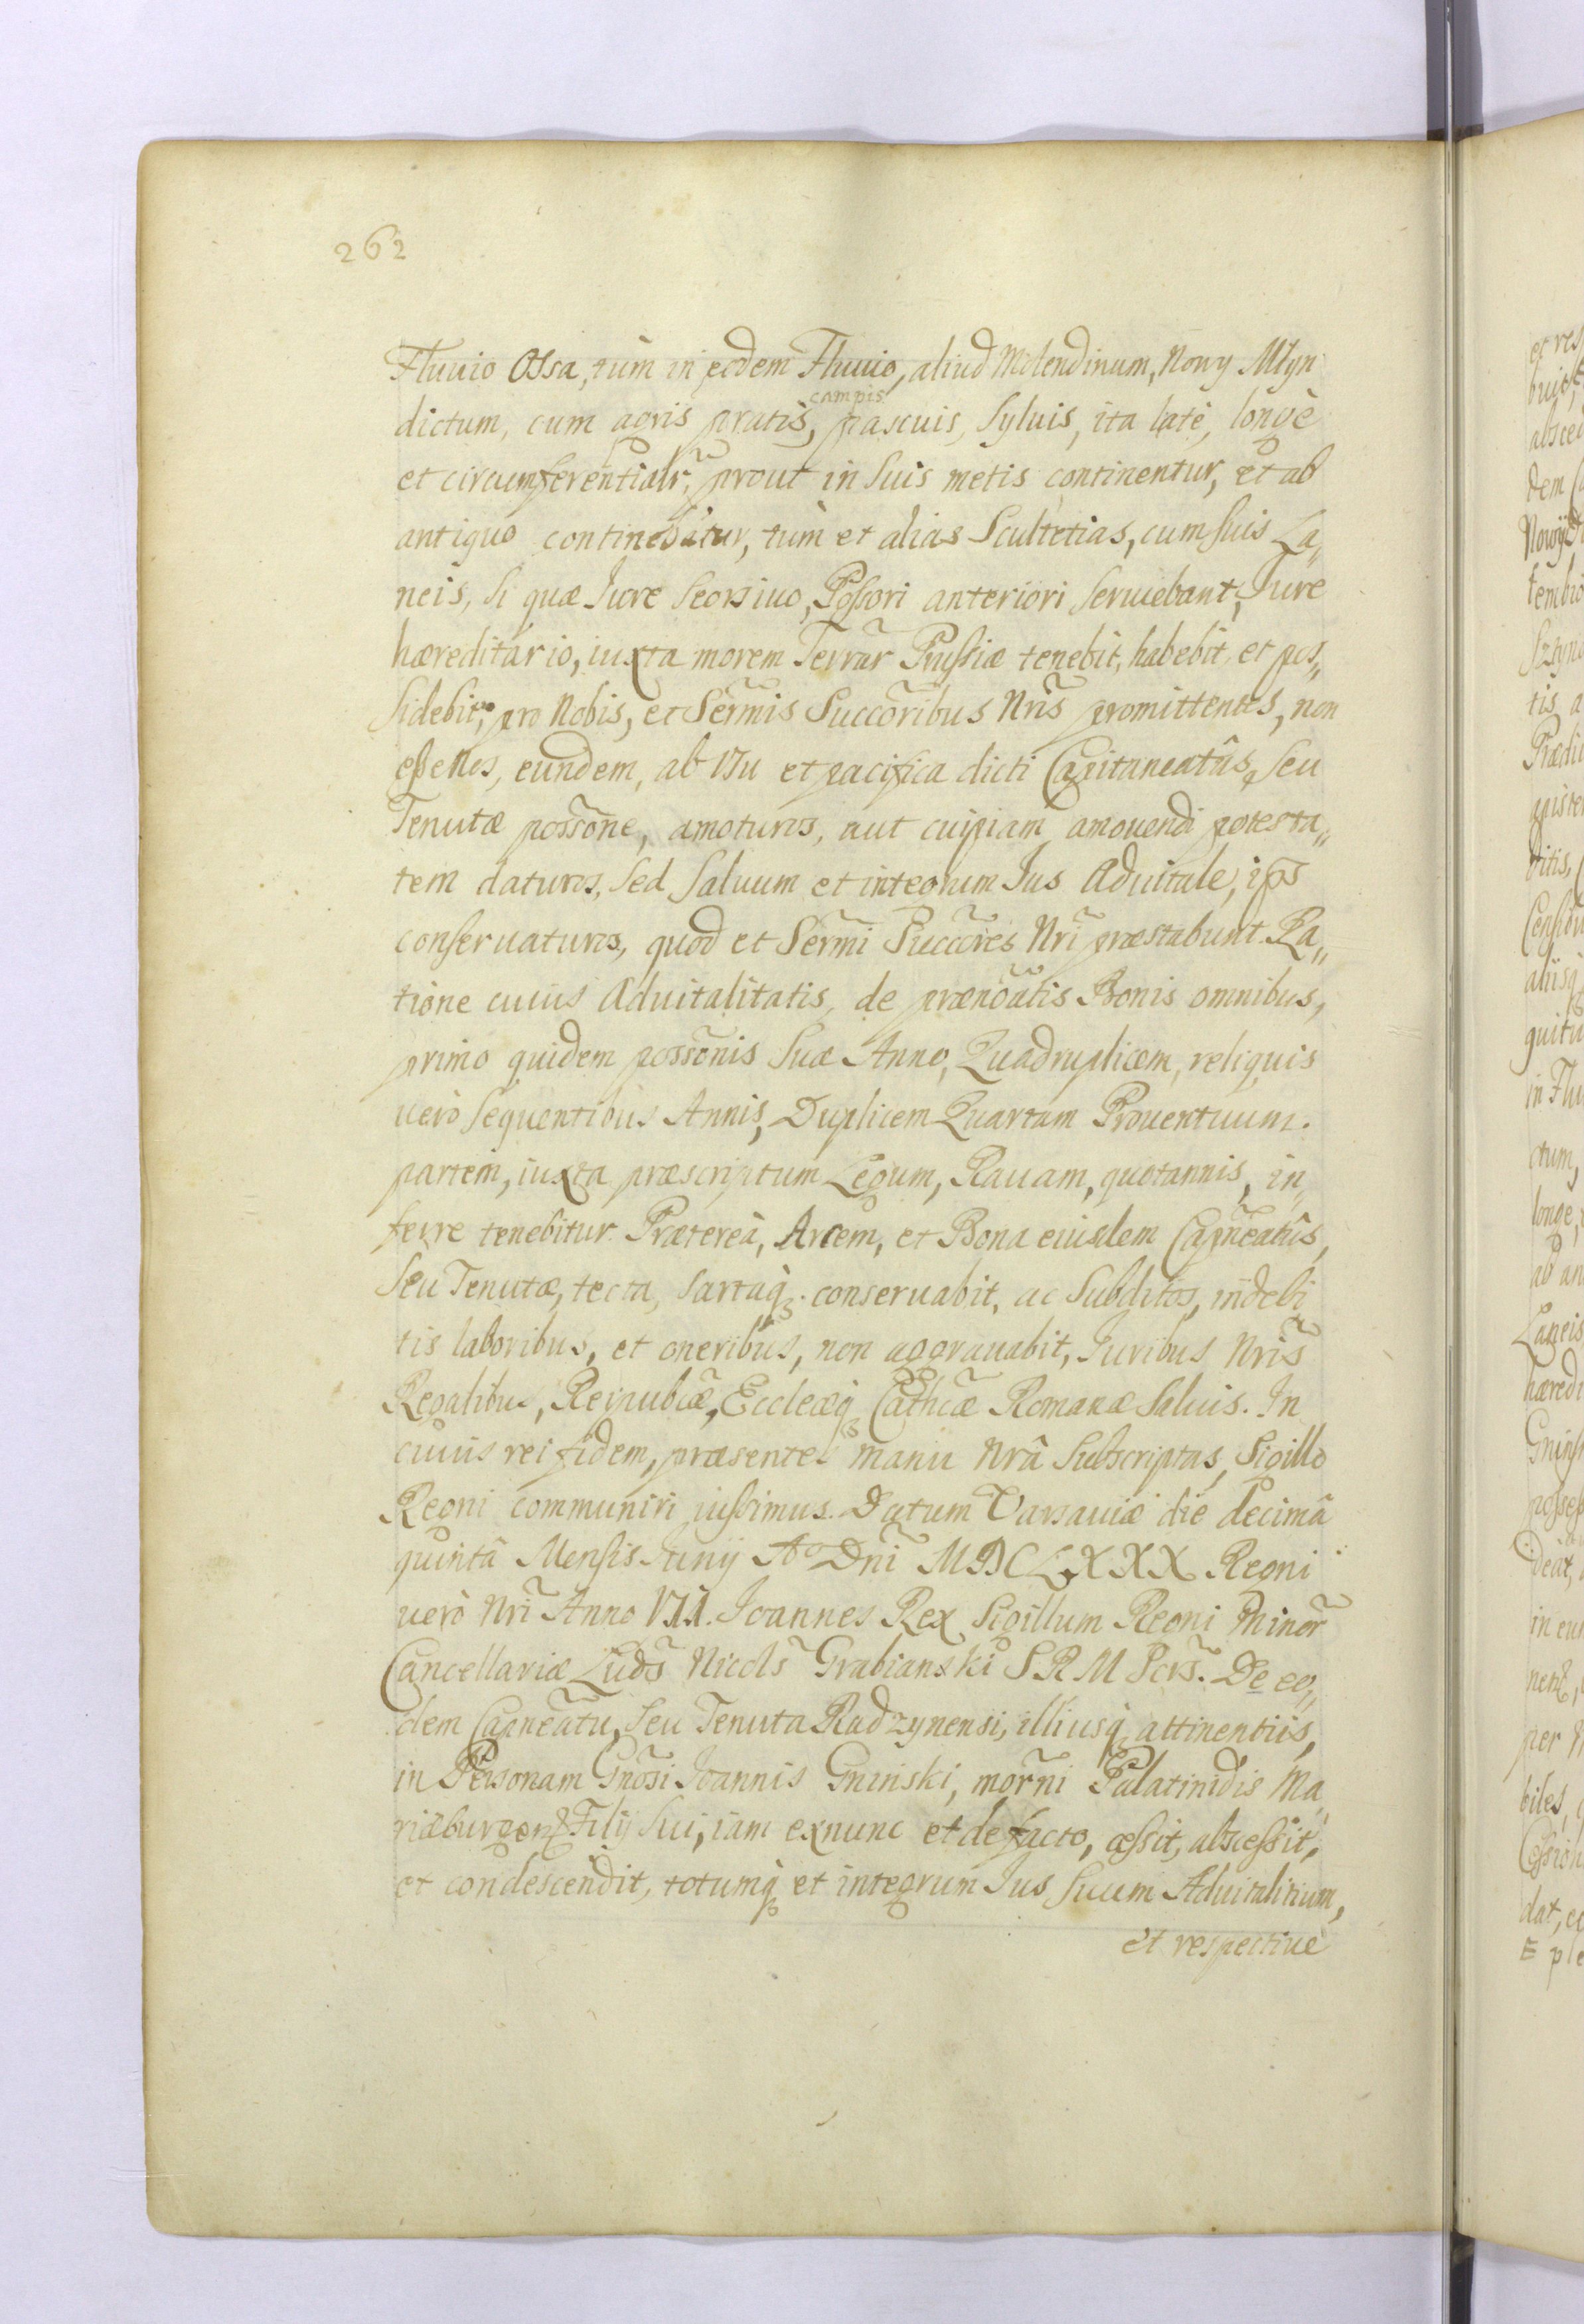 262
Fluuio Ossa, tùm in eodem Fluuio, aliud Molendinum, Nowy Młyn
campis
dictum, cum agris pratis, pascuis, syluis, ita latè, longè
et circumferentialr̃, prout in suis metis continentur, et ab
antiquo continebãtur, tùm et alias Scultetias, cum suis La„
neis, si quæ Iure seorsiuo, Possori anteriori seruiebant, Iure
hæreditario, iuxta morem Terrar̃ Prussiæ tenebit, habebit, et pos„
sidebit, pro Nobis, et Serm̃is Succor̃ibus Nr̃is promittentes, non
esse Nos, eundem, ab Vsu et pacifica dicti Capitaneatûs, seu
Tenutæ posso͠ne, amoturos, aut cuipiam amouendi potesta„
tem daturos, sed saluum et integrum Ius Aduitale, ipsi
conseruaturos, quod et Serm̃i Succor̃es Nr̃i præstabunt. Ra„
tione cuius Aduitalitatis, de prænoãtis Bonis omnibus,
primo quidem posso͠nis suæ Anno, Quadruplicem, reliquis
uerò sequentibus Annis, Duplicem Quartam Prouentuum.
partem, iuxta præscriptum Legum, Rauam, quotannis, in„
ferre tenebitur. Prætereà, Arcem, et Bona eiusdem Capñeatûs,
seu Tenutæ, tecta, sartaq;. conseruabit, ac Subditos, indebi
tis laboribus, et oneribus, non aggrauabit, Iuribus Nr̃is
Regalibus, Reipubcæ̃, Eccleæq; Cathcæ̃ Romanæ saluis. In
cuius rei fidem, præsentes manu Nrâ subscriptas, Sigillo
Regni communiri iussimus. Datum Varsauiæ die decimâ
quintâ Mensis Iunij Ao Dñi MDCLXXX Regni
uerò Nr̃i Anno VII. Ioannes Rex Sigillum Regni Minor̃
Cancellariæ Luds̃ Nicols̃ Grabianski S R M Scrs̃. De eo„
dem Capneãtu, seu Tenuta Radzynensi, illiusq; attinentiis,
in Personam Gños̃i Ioannis Gninski, mor̃ni Palatinidis Ma„
riæburgen̄ Filij sui, iam exnunc et de facto, cessit, abscessit,
et condescendit, totumq; et integrum Ius suum Aduitalitium,
et respectiuè